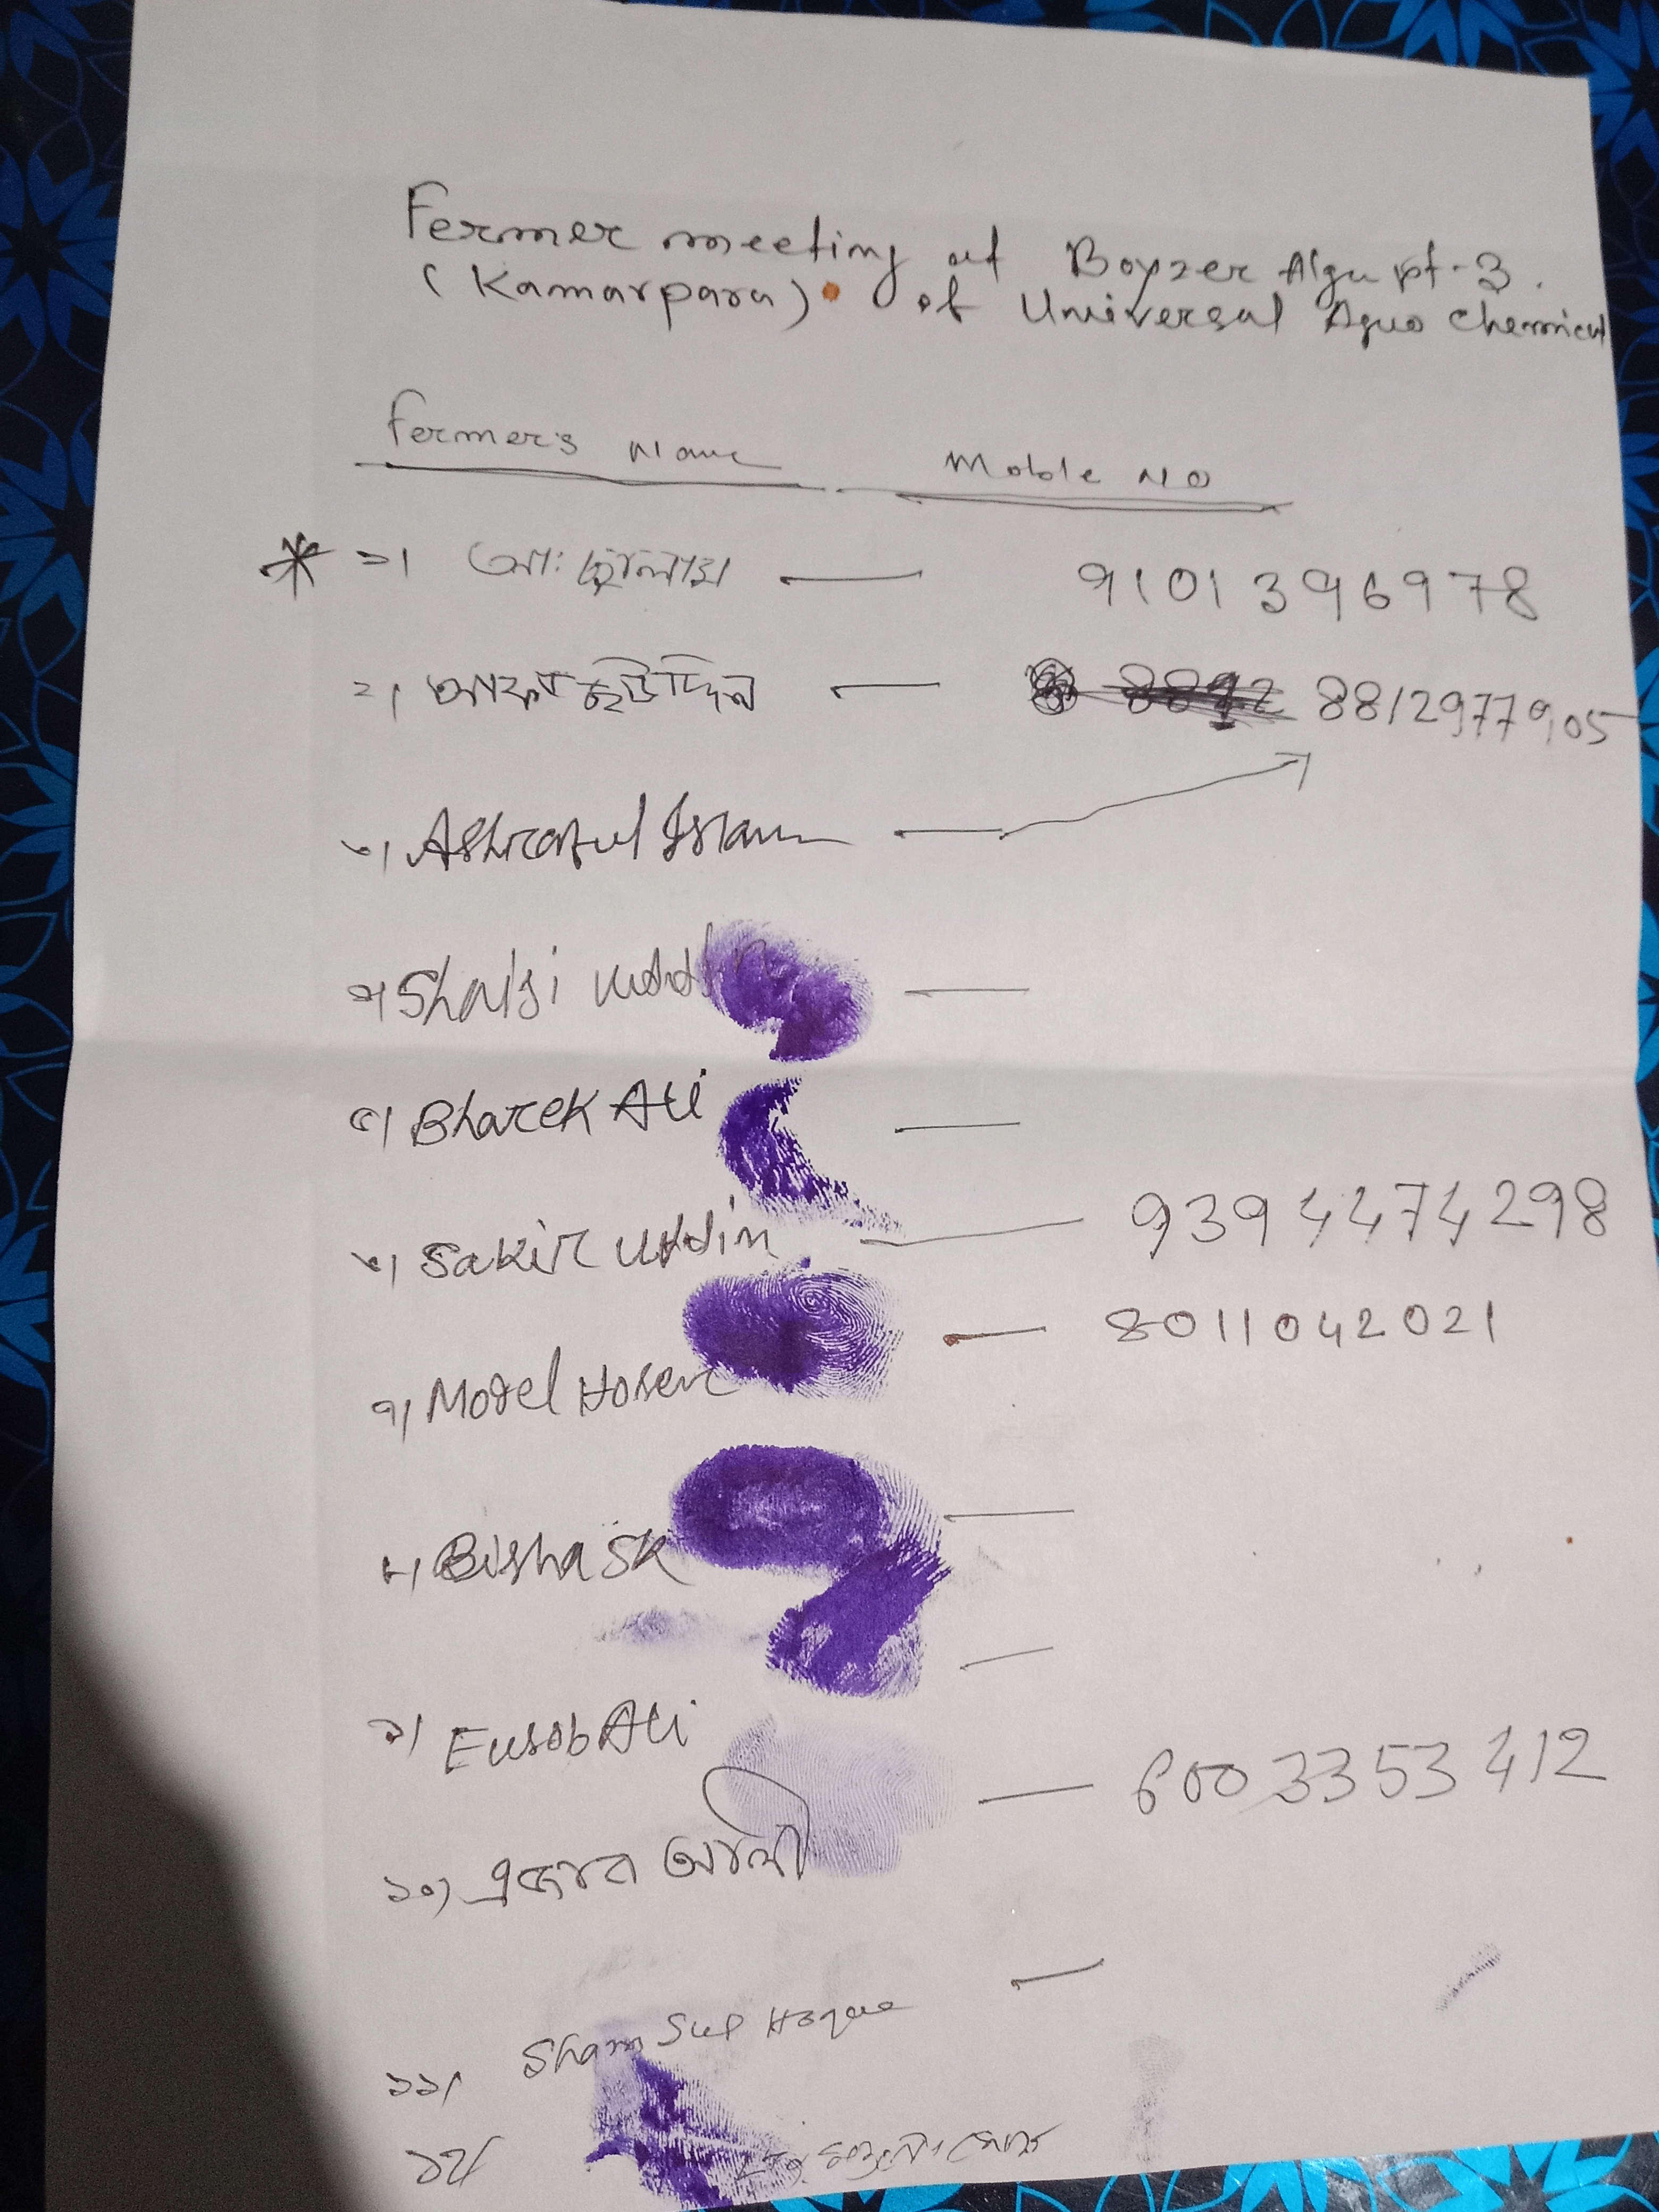 Fermer meeting at Boyzer Alga pt-3.
(Kamarpara). of Universal Aguo Chemical
Fermer's Name Moble NO
* ১। আঃ ছালাম — 9101396978
২। উদ্দিন — 8812977905
৩। Ashraful Islam —
৪। uddin —
৫। Bharek Ali —
৬। Sakir Uddin — 9394474298
— 8011042021
৭। Model Hosen
৮। Bisha SK —
৯। Eusob Ali —
— 6003353412
১০) আলী
১১। Sham Sul Hoque —
১২।